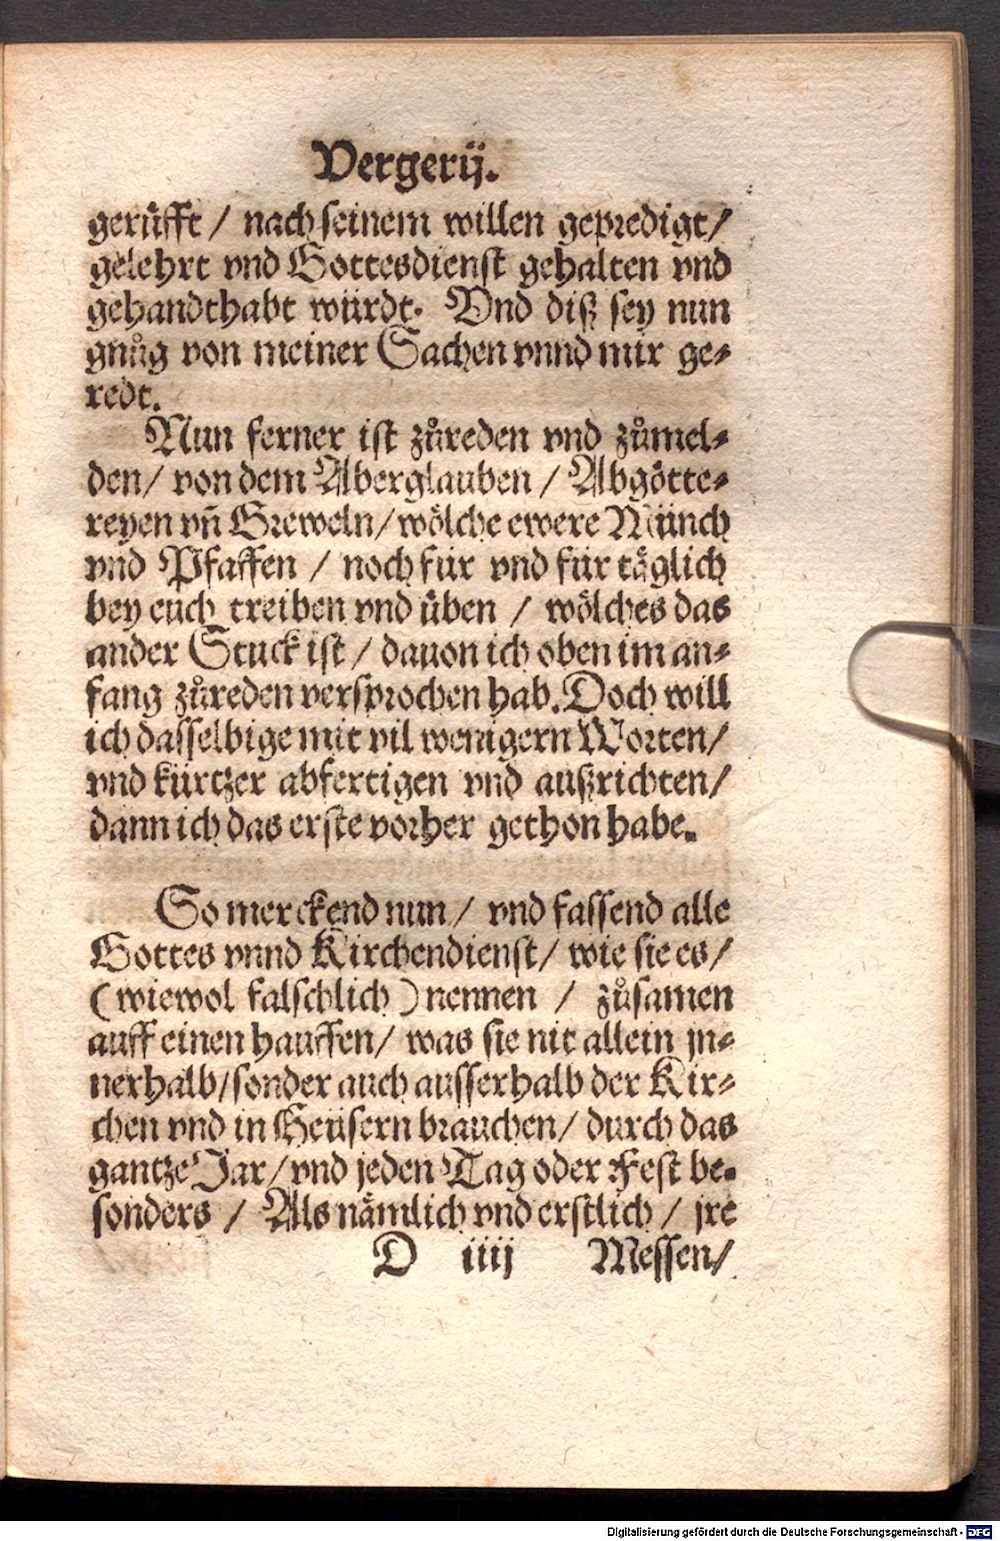 Vergerij.
gerüfft / nach seinem willen gepredigt /
gelehrt vnd Gottesdienst gehalten vnd
gehandthabt würdt. Vnd diß sey nun
gnůg von meiner Sachen vnnd mir ge⸗
redt.
Nun ferner ist zůreden vnd zůmel⸗
den / von dem Aberglauben / Abgötte⸗
reyen vñ Greweln / wölche ewere Münch
vnd Pfaffen / noch für vnd für täglich
bey euch treiben vnd üben / wölches das
ander Stuck ist / dauon ich oben im an⸗
fang zůreden versprochen hab. Doch will
ich dasselbige mit vil wenigern Worten /
vnd kürtzer abfertigen vnd außrichten /
dann ich das erste vorher gethon habe.
So merckend nun / vnd fassend alle
Gottes vnnd Kirchendienst / wie sie es /
(wiewol falschlich) nennen / zůsamen
auff einen hauffen / was sie nit allein jn⸗
nerhalb / sonder auch ausserhalb der Kir⸗
chen vnd in Heüsern brauchen / durch das
gantze Jar / vnd jeden Tag oder Fest be⸗
sonders / Als nämlich vnd erstlich / jre
D iiij Messen /
Digitalisierung gefördert durch die Deutsche Forschungsgemeinschaft - DFG